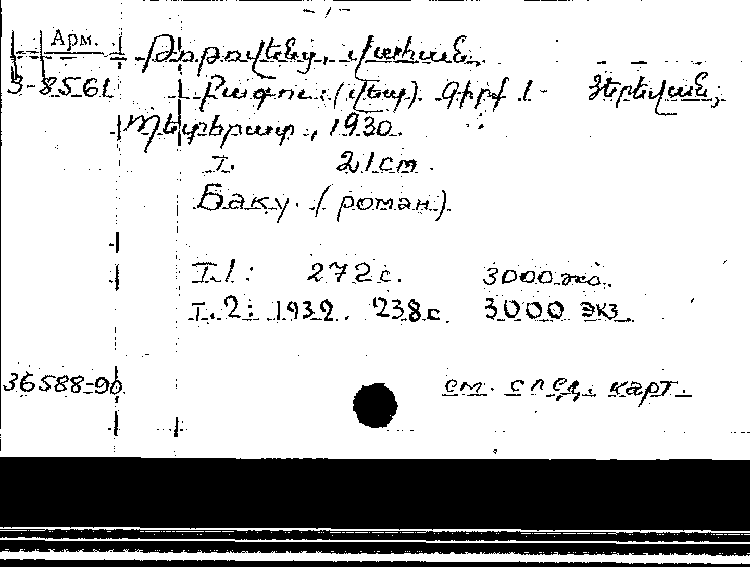 Арм.
Թոթովենց, Վահան.
3-8561 Բագու: (վեպ). Գիրք 1 - Յերեվան,
Պետհրատ, 1930.
т. 21 см.
Баку. (роман).
т.1: 272 с. 3000 экз.
т.2: 1932. 238 с 3000 экз.
36588-90 см. след. карт.